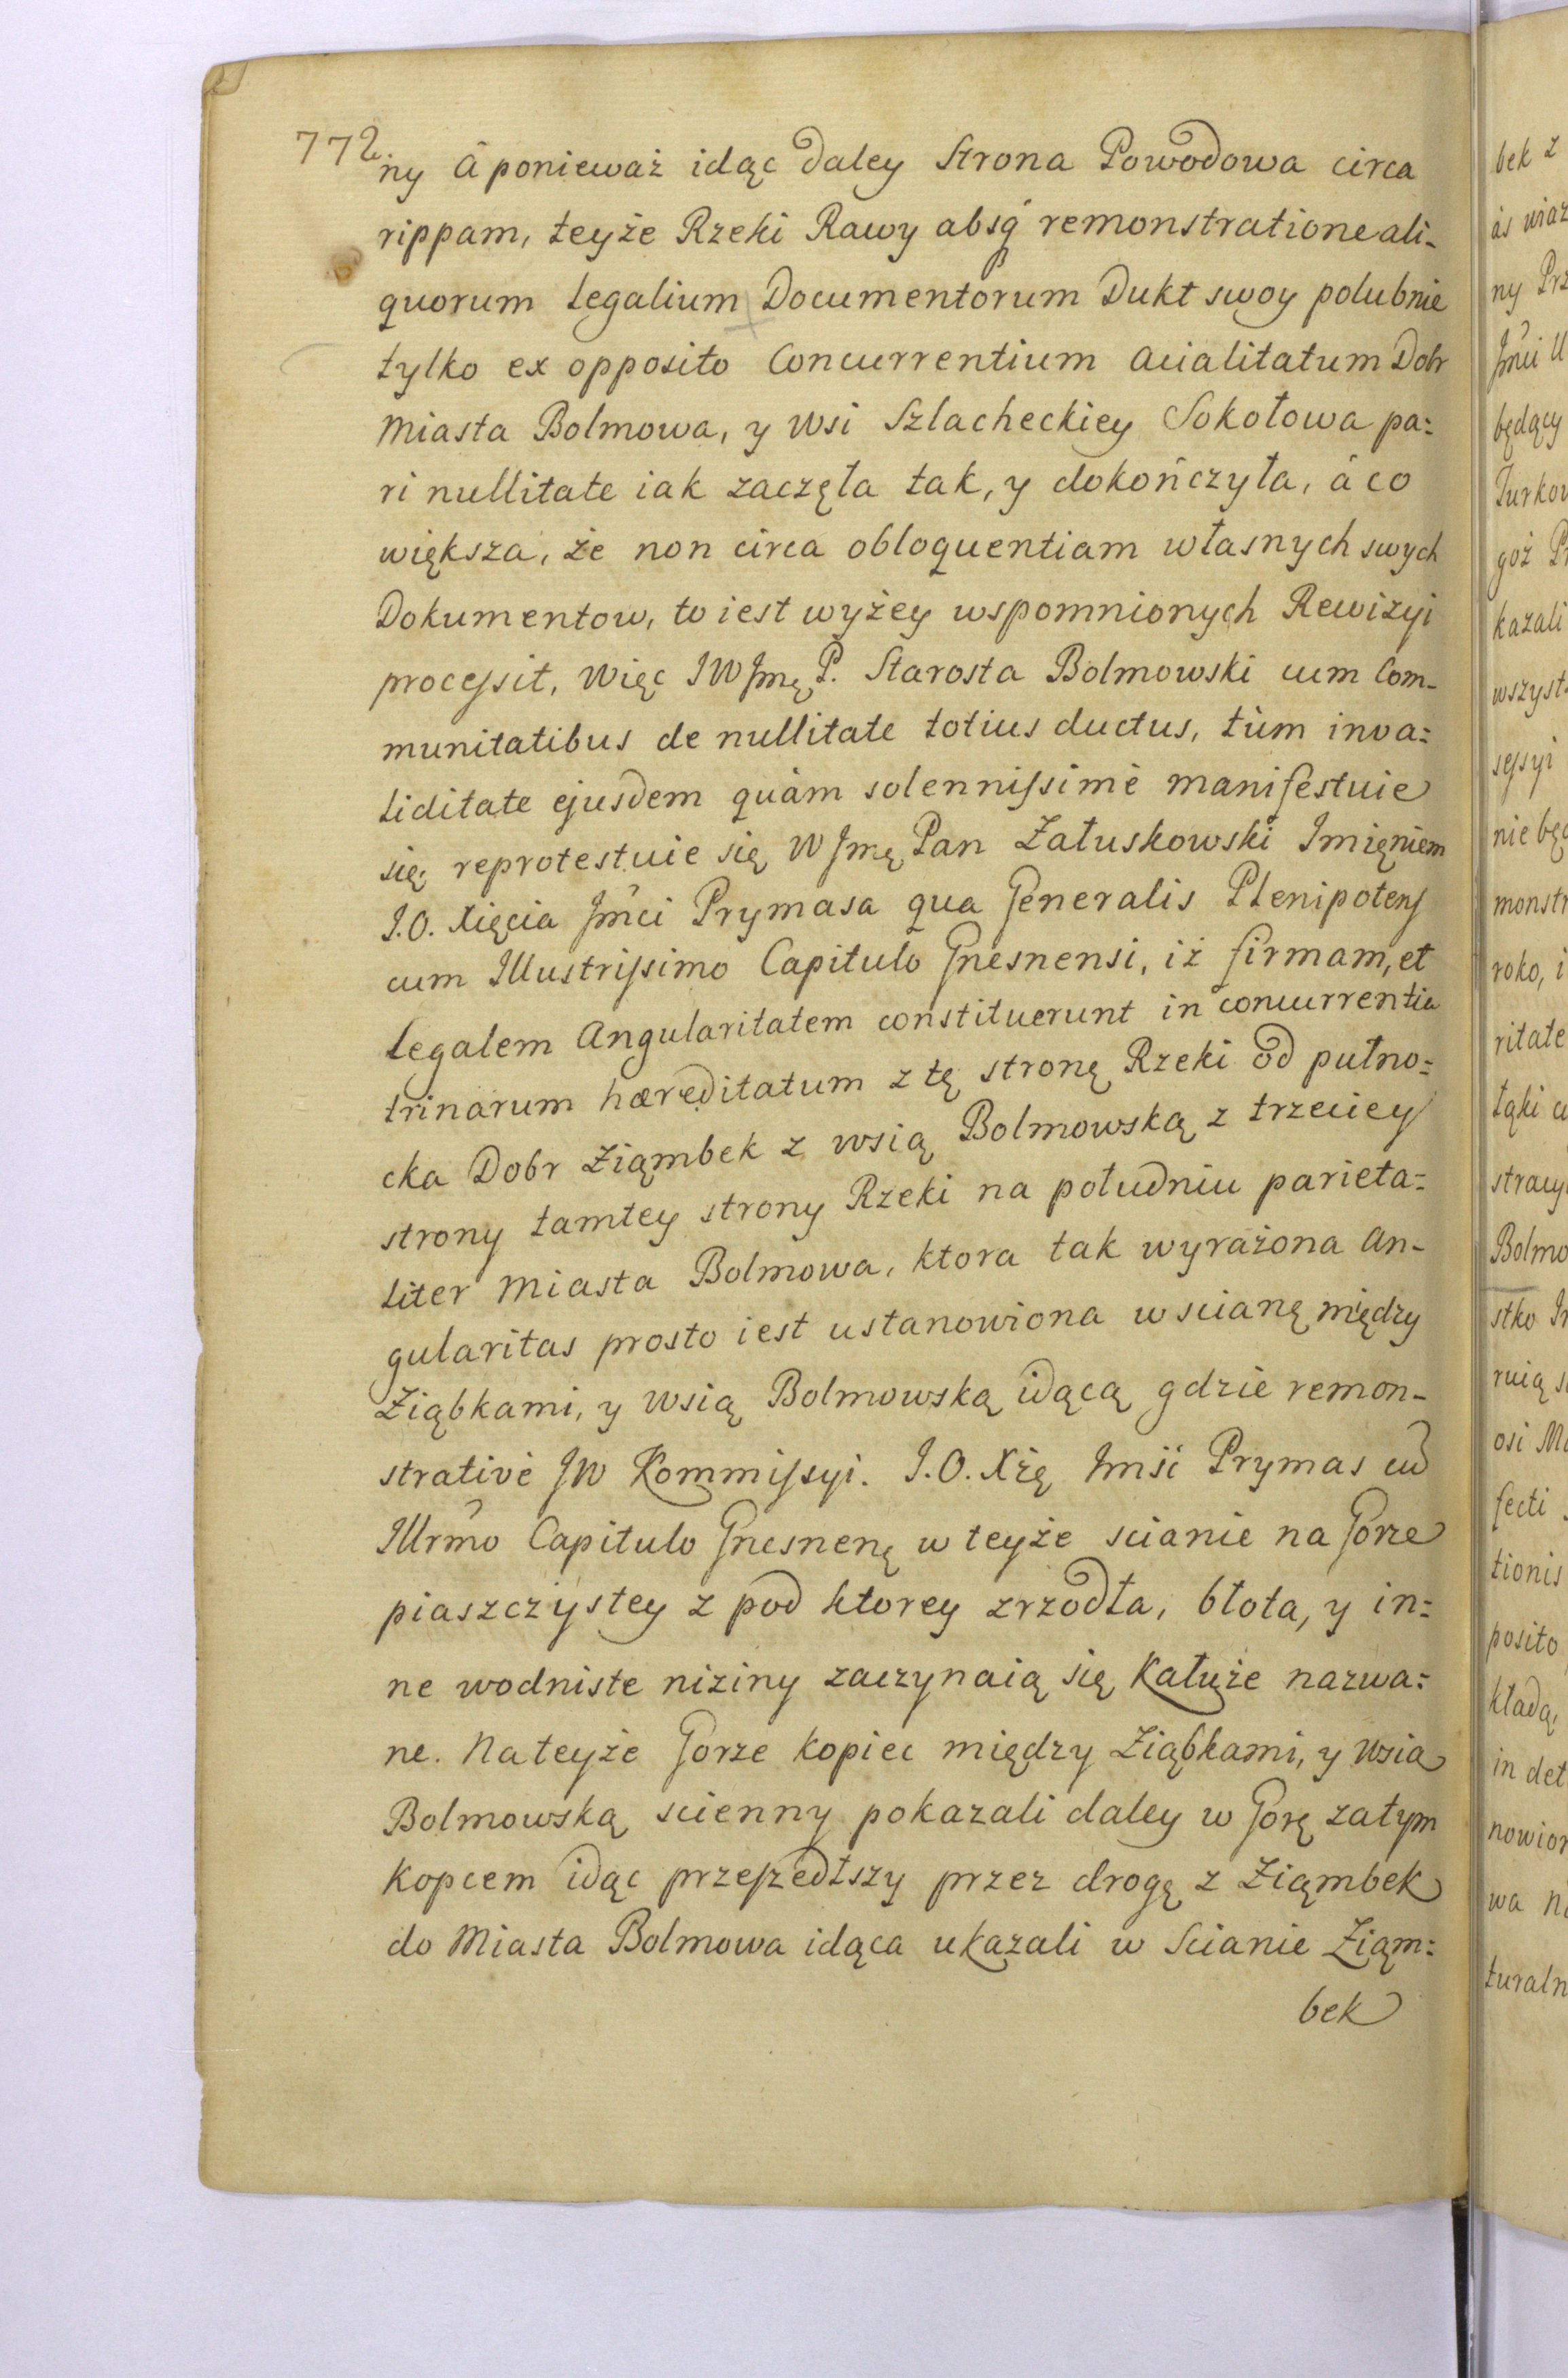 772
ny á ponieważ idąc daley Strona Powodowa circa
rippam, teyże Rzeki Rawy absq́ remonstratione ali-
quorum legalium Documentorum Dukt swoy polubnie
tylko ex opposito Concurrentium Acialitatum Dobr
Miasta Bolmowa, y Wsi Szlacheckiey Sokołowa pa:
ri nullitate iak zaczęła tak, y dokończyła, á co
większa, że non circa obloquentiam własnych swych
Dokumentow, to iest wyżey wspomnionych Rewizyi
processit, Więc JW Jmę P. Starosta Bolmowski cum Com-
munitatibus de nullitate totius ductus, tùm inva:
liditate ejusdem quàm solennissimè manifestuie
się, reprotestuie się W Jmę Pan Załuskowski Imięniem
J.O. Xięcia Jm̃ci Prymasa qua Generalis Plenipotens
cum Illustrissimo Capitulo Gnesnensi, iż firmam, et
legalem Angularitatem constituerunt in concurrentia
trinarum hæreditatum z tę stronę Rzeki od pułno:
cka Dobr Ziąmbek z wsią Bolmowską z trzeciey
strony tamtey strony Rzeki na południu parieta:
liter Miasta Bolmowa, ktora tak wyrażona An-
gularitas prosto iest ustanowiona w scianę między
Ziąbkami, y Wsią Bolmowską idącą gdzie remon-
strativè JW Kommissyi. J.O. Xżę Jmść Prymas cum̃
Illrm̃o Capitulo Gnesnenę w teyże scianie na Gorze
piaszczystey z pod ktorey zrzodła, błota, y in:
ne wodniste niziny zaczynaią się Kałuże nazwa:
ne. Na teyże Gorze kopiec między Ziąbkami, y Wsią
Bolmowską scienny pokazali daley w Gorę za tym
kopcem idąc przeszedłszy przez drogę z Ziąmbek
do Miasta Bolmowa idąca ukazali w Scianie Ziąm:
bek
bek z
ny
będący
kazali
monstr
roko, i
ritate
Bolmo
stko
fecti
tionis
posito
kładą
in det
nowion
wa
turaln